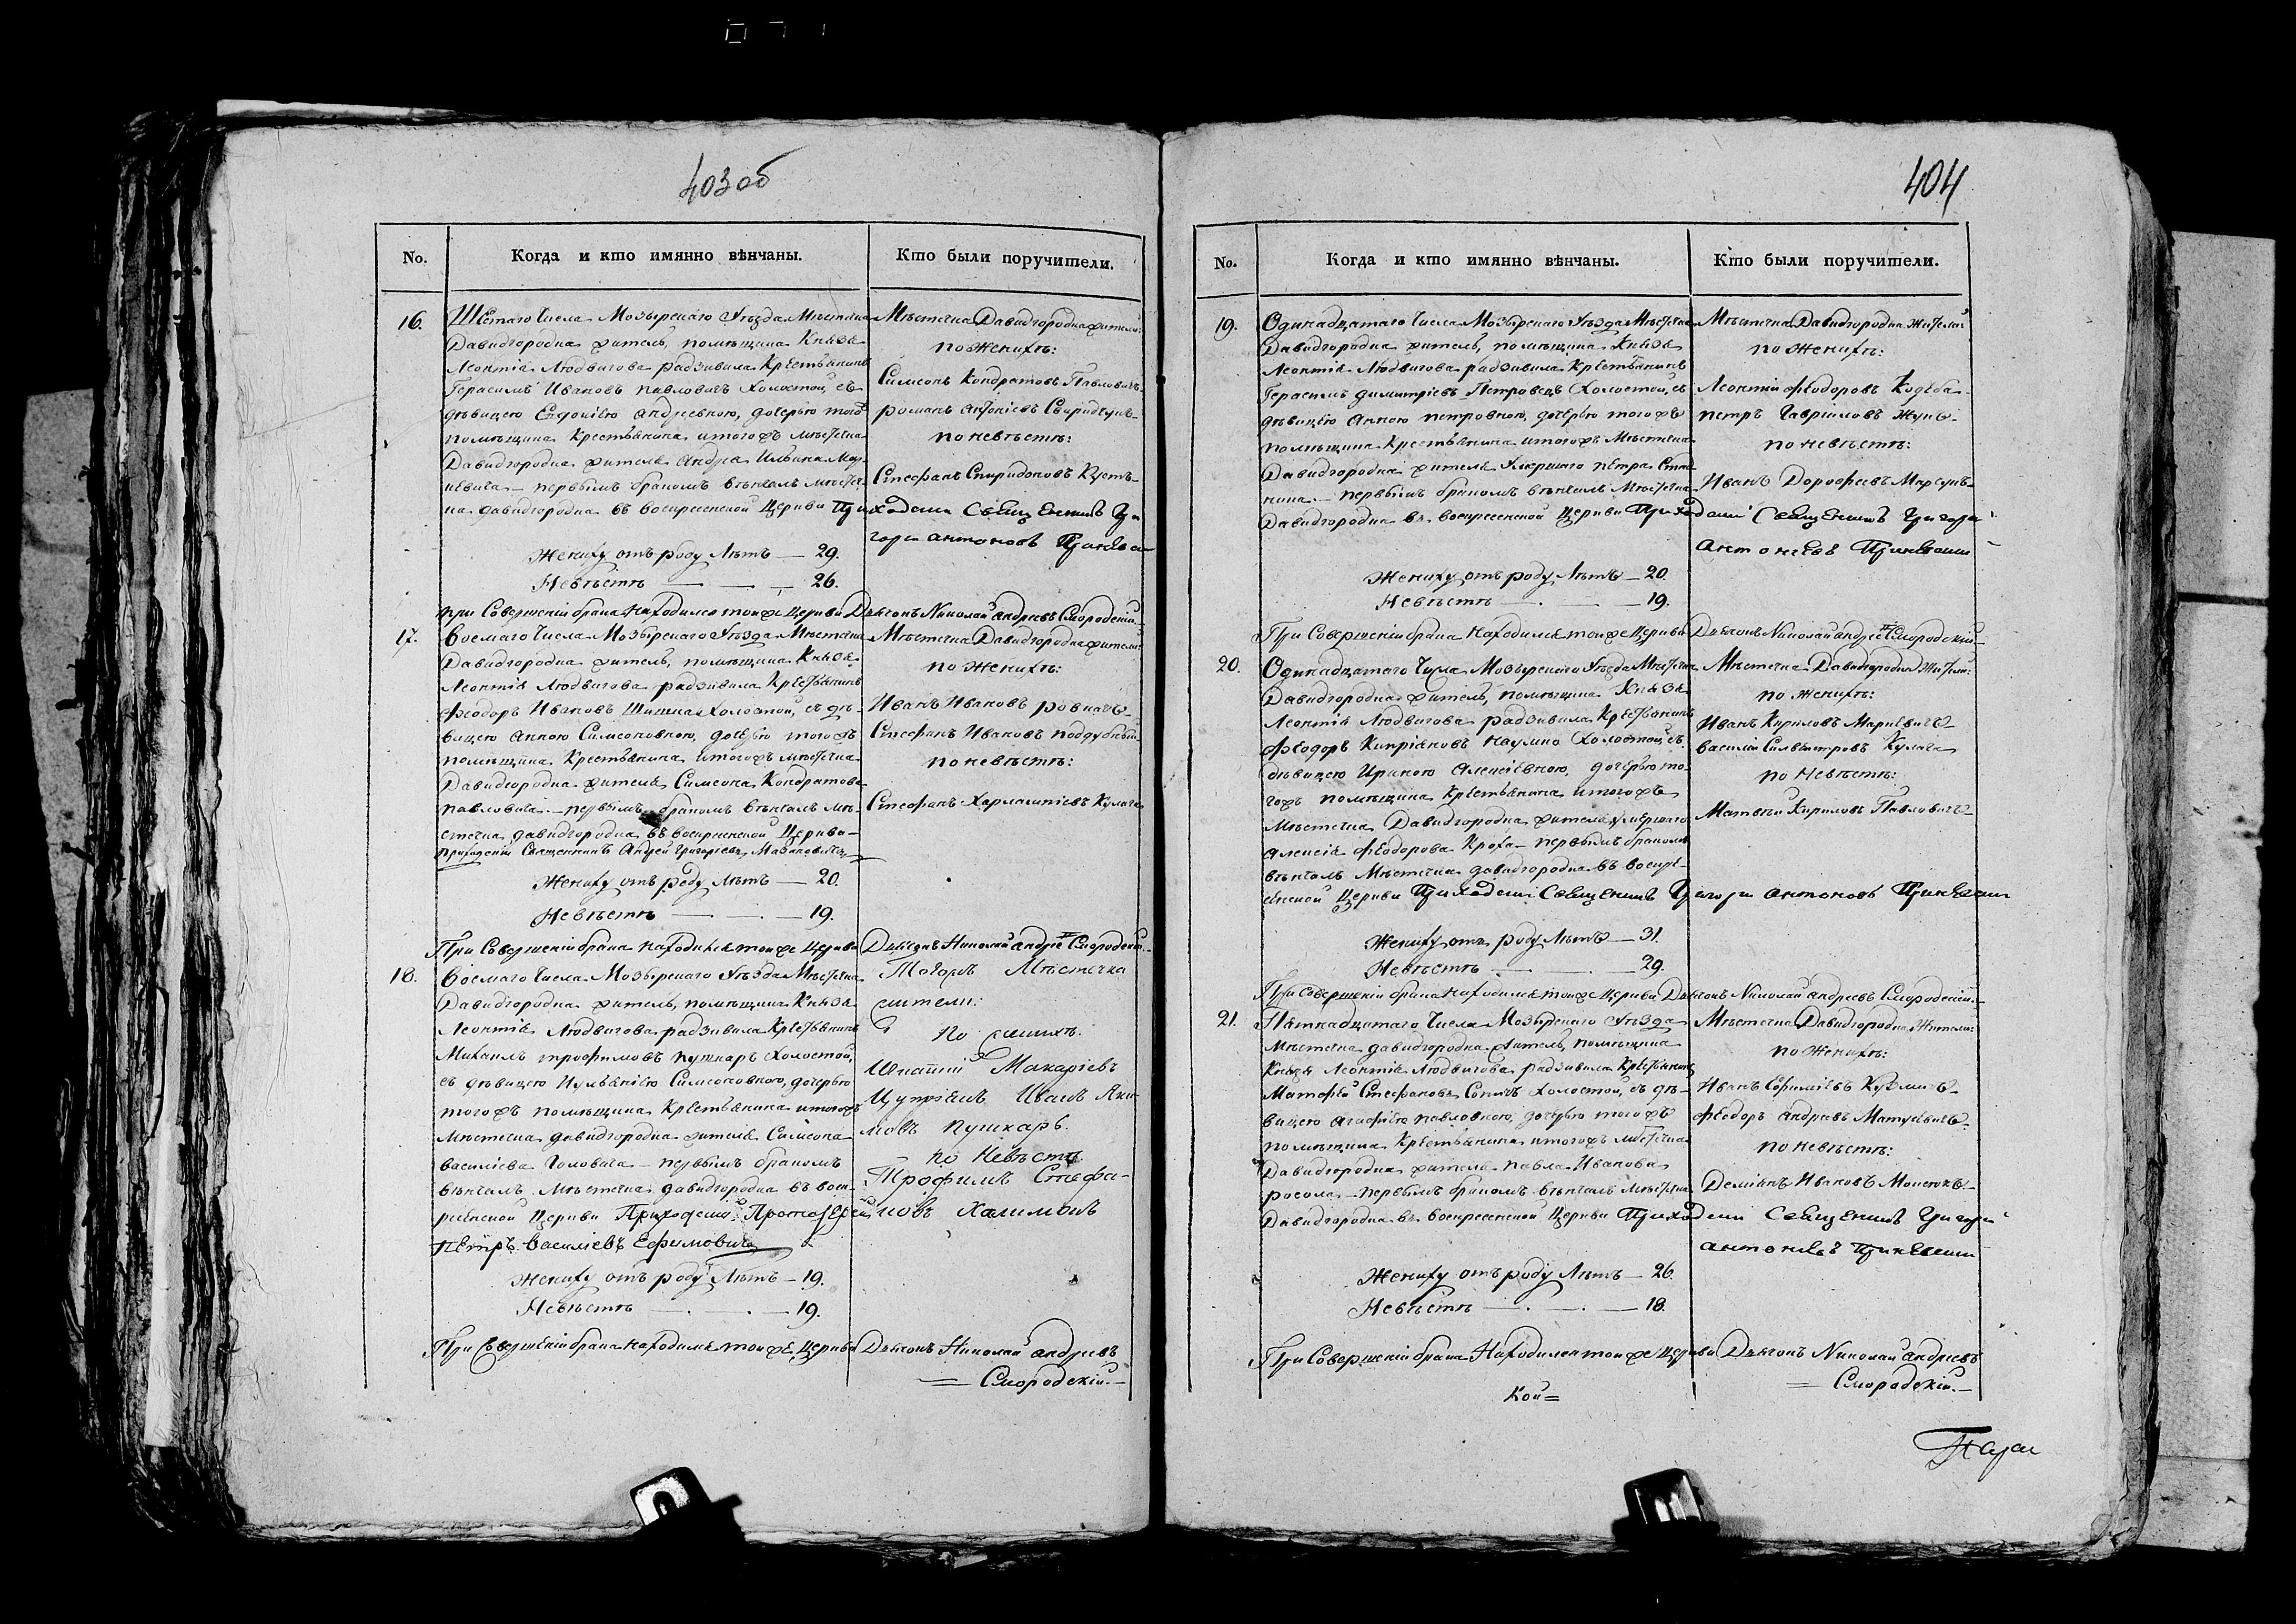 403 об
No. Когда и кто имянно вѣнчаны. Кто были поручители.
16. Шестаго Числа Мозырскаго Уѣзда Мѣстечка
Давидгородка житель, помѣщика Князя
Леонтія Людвигова радзивила Крестьянинъ
Герасимъ Ивановъ павловичъ Холостой, съ
дѣвицею андреевною, дочерью того жъ
помѣщика Крестьянина итогожъ мѣстечка
Давидгородка жителя андрея Ильина
первымъ бракомъ вѣнчалъ мѣстеч-
ка давидгородка въ воскресенской Церкви Приходскій Священникъ Гри-
горій антоновъ
Жениху отъ роду Лѣтъ — 29.
Невѣстѣ — 26.
при Совершеніи брака находился тойже Церкви Дьячокъ Николай андреевъ Смородскій
Мѣстечка Давидгородка жители:
по Женихѣ:
Симеонъ Кондратовъ Павловичъ
романъ
по невѣстѣ:
Стефанъ Спиридоновъ
17. Восмаго Числа Мозырскаго Уѣзда Мѣстечка
Давидгородка житель, помѣщика Князя
Леонтія Людвигова радзивила Крестьянинъ
Феодоръ Ивановъ Шишка Холостой, съ дѣ-
вицею анною Симеоновною, дочерью тогожъ
помѣщика Крестьянина итогожъ мѣстечка
Давидгородка жителя Симеона Кондратова
павловича — первымъ бракомъ вѣнчалъ мѣ-
стечка давидгородка въ воскресенской Церкви
приходскій Священникъ Андрей Григоріевъ
Жениху отъ роду Лѣтъ — 20.
Невѣстѣ — 19.
При Совершеніи брака находился тойже Церкви Дьячокъ Николай андреевъ Смородскій
Мѣстечка Давидгородка жители:
по Женихѣ:
Иванъ Ивановъ
Стефанъ Ивановъ поддубный
по невѣстѣ:
Стефанъ Харлампіевъ Кулага
18. Восмаго Числа Мозырскаго Уѣзда Мѣстечка
Давидгородка житель, помѣщика Князя
Леонтія Людвигова радзивила Крестьянинъ
Михаилъ трофимовъ пушкарь Холостой,
съ дѣвицею Иуліаніею Симеоновною, дочерью
тогожъ помѣщика Крестьянина итогожъ
мѣстечка давидгородка жителя Симеона
василіева Головача — первымъ бракомъ
вѣнчалъ Мѣстечка давидгородка въ воск-
ресенской Церкви Приходскій Протоіерей
петръ василіевъ Ефимовичъ
Жениху отъ роду Лѣтъ — 19.
Невѣстѣ — 19.
При Совершеніи брака находился тойже Церкви Дьячокъ Николай андреевъ
Смородскій.
Тогожъ Мѣстечка
жители:
По женихѣ.
Игнатій Макаріевъ
Иванъ Яки-
мовъ пушкарь.
по Невѣстѣ
Трофимъ Стефа-
новъ Халимонъ
404
No. Когда и кто имянно вѣнчаны. Кто были поручители.
19. Одинадцатаго Числа Мозырскаго Уѣзда Мѣстечка
Давидгородка житель, помѣщика Князя
Леонтія Людвигова радзивила Крестьянинъ
Герасимъ димитріевъ Петровецъ Холостой, съ
дѣвицею анною петровною, дочерью тогожъ
помѣщика Крестьянина итогожъ Мѣстечка
Давидгородка жителя умершаго петра
первымъ бракомъ вѣнчалъ Мѣстечка
Давидгородка въ воскресенской Церкви Приходскій Священникъ Григорій
антоніевъ
Жениху отъ роду Лѣтъ — 20.
Невѣстѣ — 19.
При Совершеніи брака находился тойже Церкви Дьячокъ Николай андреевъ Смородскій
Мѣстечка Давидгородка Жители:
по Женихѣ:
Леонтій Феодоровъ
петръ Гавріиловъ Жукъ
по невѣстѣ:
Иванъ Дорофеевъ
20. Одинадцатаго Числа Мозырскаго Уѣзда Мѣстечка
Давидгородка житель, помѣщика Князя
Леонтія Людвигова радзивила Крестьянинъ
Феодоръ Кипріановъ Наумко Холостой, съ
дѣвицею Ириною алексіевною, дочерью то-
гожъ помѣщика Крестьянина итогожъ
Мѣстечка Давидгородка жителя умершаго
алексія Феодорова Кроха — первымъ бракомъ
вѣнчалъ Мѣстечка давидгородка въ воскре-
сенской Церкви Приходскій Священникъ Григорій антоновъ
Жениху отъ роду Лѣтъ — 31.
Невѣстѣ — 29.
При Совершеніи брака находился тойже Церкви Дьячокъ Николай андреевъ Смородскій
Мѣстечка Давидгородка Жители:
по Женихѣ:
Иванъ Кириловъ Марцевичъ
василій Силвестровъ Кулага
по Невѣстѣ:
Матвей Кириловъ Павловичъ
21. Пятнадцатаго Числа Мозырскаго Уѣзда
Мѣстечка давидгородка житель, помѣщика
Князя Леонтія Людвигова радзивила Крестьянинъ
Матфей Стефановъ Сопичъ Холостой, съ дѣ-
вицею агафіею павловною, дочерью тогожъ
помѣщика Крестьянина итогожъ мѣстечка
Давидгородка жителя павла Иванова
росола — первымъ бракомъ вѣнчалъ мѣстечка
Давидгородка въ воскресенской Церкви Приходскій Священникъ Григорій
антоніевъ
Жениху отъ роду Лѣтъ — 26.
Невѣстѣ — 18.
При Совершеніи брака находился тойже Церкви Дьячокъ Николай андреевъ
Смородскій.
Мѣстечка Давидгородка Жители:
по Женихѣ:
Иванъ Ефиміевъ
Феодоръ андреевъ Матусевичъ
по невѣстѣ:
Деміянъ Ивановъ